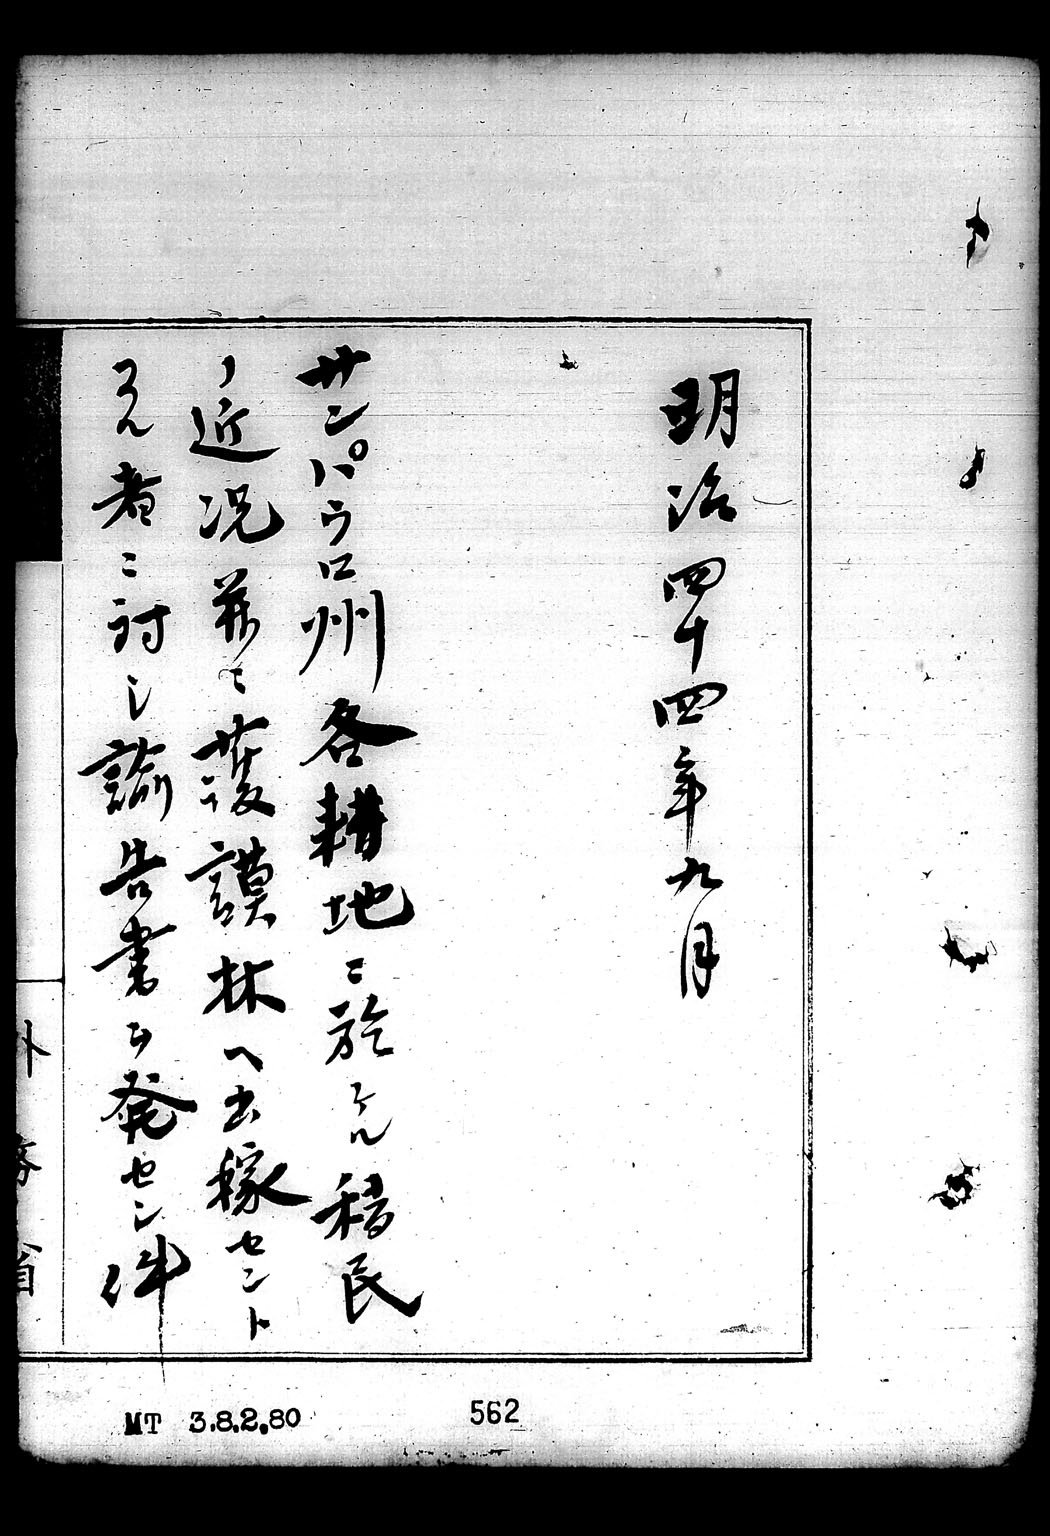 明治四十四年九月
サンパウロ州各耕地ニ於ケル移民
ノ近况并ニ護謨林ヘ出稼セント
スル者ニ討シ諭告書ヲ発セシ件
外務省
MT 3.8.2.80
562